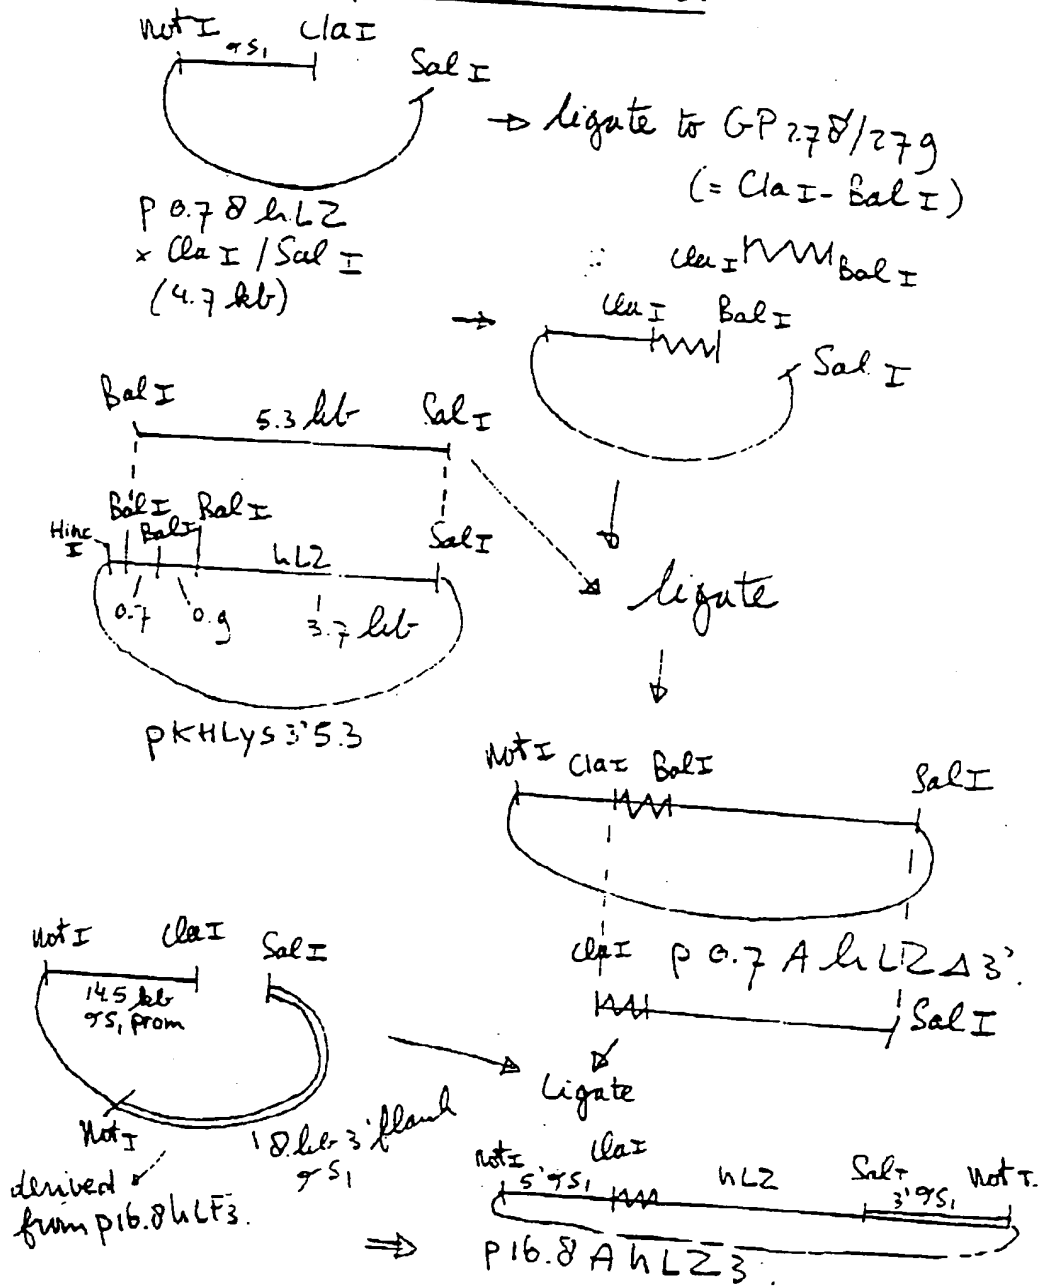 Not I Cla I
αS₁
Sal I
→ ligate to GP 278/279
(= Cla I - Bal I)
p 0.7 8 hLZ
x Cla I / Sal I
(4.7 kb)
Cla I Bal I
Cla I Bal I
Sal I
Bal I
5.3 kb
Sal I
Bal I Bal I
Hinc I
Bal I
hLZ
Sal I
0.7 0.9 3.7 kb
pKHLys 3'5.3
ligate
Not I Cla I Bal I
Sal I
p 0.7 A hLZ Δ3'.
Cla I
Sal I
Not I Cla I Sal I
14.5 kb
αS₁ prom
Not I
8 kb 3' flank
αS₁
derived
from p16.8hLF3.
Ligate
Not I Cla I
5' αS₁
hLZ
Sal I
3' αS₁
Not I.
⇒ p16.8 A hLZ3.